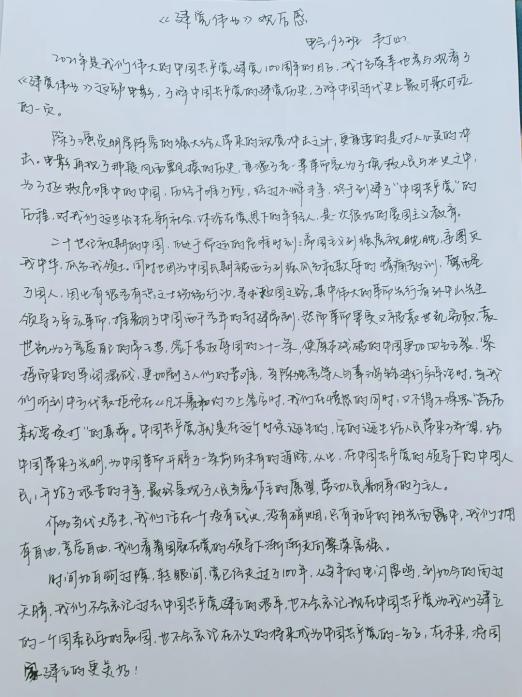 《建党伟业》观后感
2021年是我们伟大的中国共产党建党100周年的日子，我十分荣幸地参与观看了
《建党伟业》这部电影，了解中国共产党的建党历史，了解中国近代史上最可歌可泣
的一页。
除了演员明星阵容的强大给人带来的视觉冲击之外，更重要的是对人心灵的冲
击。电影再现了那段风雨飘摇的历史，直面了老一辈革命家为了拯救人民于水火之中，
为了拯救危难中的中国，历经千难万险，经过不懈斗争，终于创建了“中国共产党”的
历程，对我们这些出生在新社会，沐浴在党恩下的年轻人，是一次很好的爱国主义教育。
二十世纪初期的中国，正处于命运的危难时刻：帝国主义列强虎视眈眈，妄图灭
我中华，瓜分我领土。同时也因为中国长期被西方列强瓜分和欺辱的惨痛教训，
了国人，因此有很多有识之士纷纷行动，寻求救国之路，其中伟大的革命先行者孙中山先生
领导了辛亥革命，推翻了中国两千多年的封建帝制。然而革命果实又被袁世凯窃取，袁
世凯为了当皇帝自己的帝王梦，签下丧权辱国的二十一条，使原本残破的中国更加四分五裂，紧
接而来的军阀混战，更加剧了人们的苦难，当陈独秀等人与李鸿铭进行辩论时，当我
们听到中方代表拒绝在《凡尔赛和约》上签字时，我们在愤怒的同时，又不得不深思“落后
就要挨打”的真谛。中国共产党就是在这个时候诞生的，它的诞生给人民带来了希望，给
中国带来了光明，为中国革命开辟了一条前所未有的道路，从此，在中国共产党的领导下的中国人
民，开始了艰苦的斗争，最终实现了人民当家作主的愿望，劳动人民翻身做了主人。
作为当代大学生，我们活在一个没有战火，没有硝烟，只有和平的阳光雨露中，我们拥
有自由，享受自由，我们看着国家在党的领导下渐渐走向繁荣富强。
时间如白驹过隙，转眼间，党已经走过了100年，从当年的电闪雷鸣，到如今的雨过
天晴，我们不会忘记过去中国共产党建立的艰辛，也不会忘记现在中国共产党为我们建立
的一个国泰民安的家园，也不会忘记在不久的将来成为中国共产党的一分子，在未来，将国
家建立的更美好！